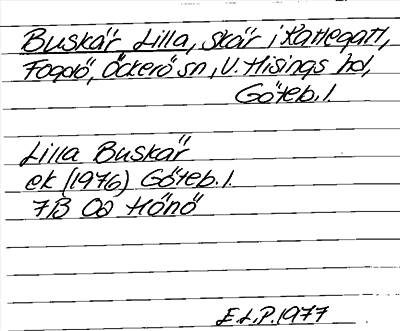 Buskär Lilla, skär i Kattegatt,
Fogdö, Öckerö sn, V. Hisings hd,
Göteb. l.
Lilla Buskär
ek (1976) Göteb. l.
7B 0a Hönö
E.L.P. 1977